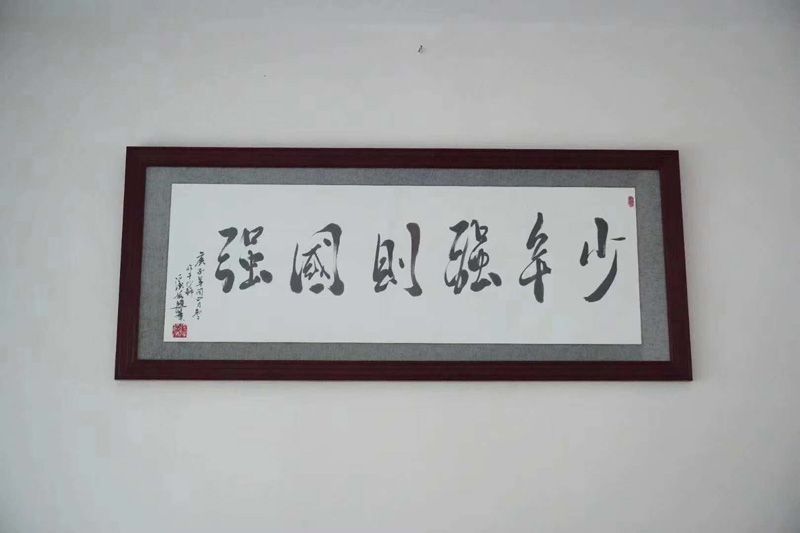 少年强则國强
庚子年閏四月